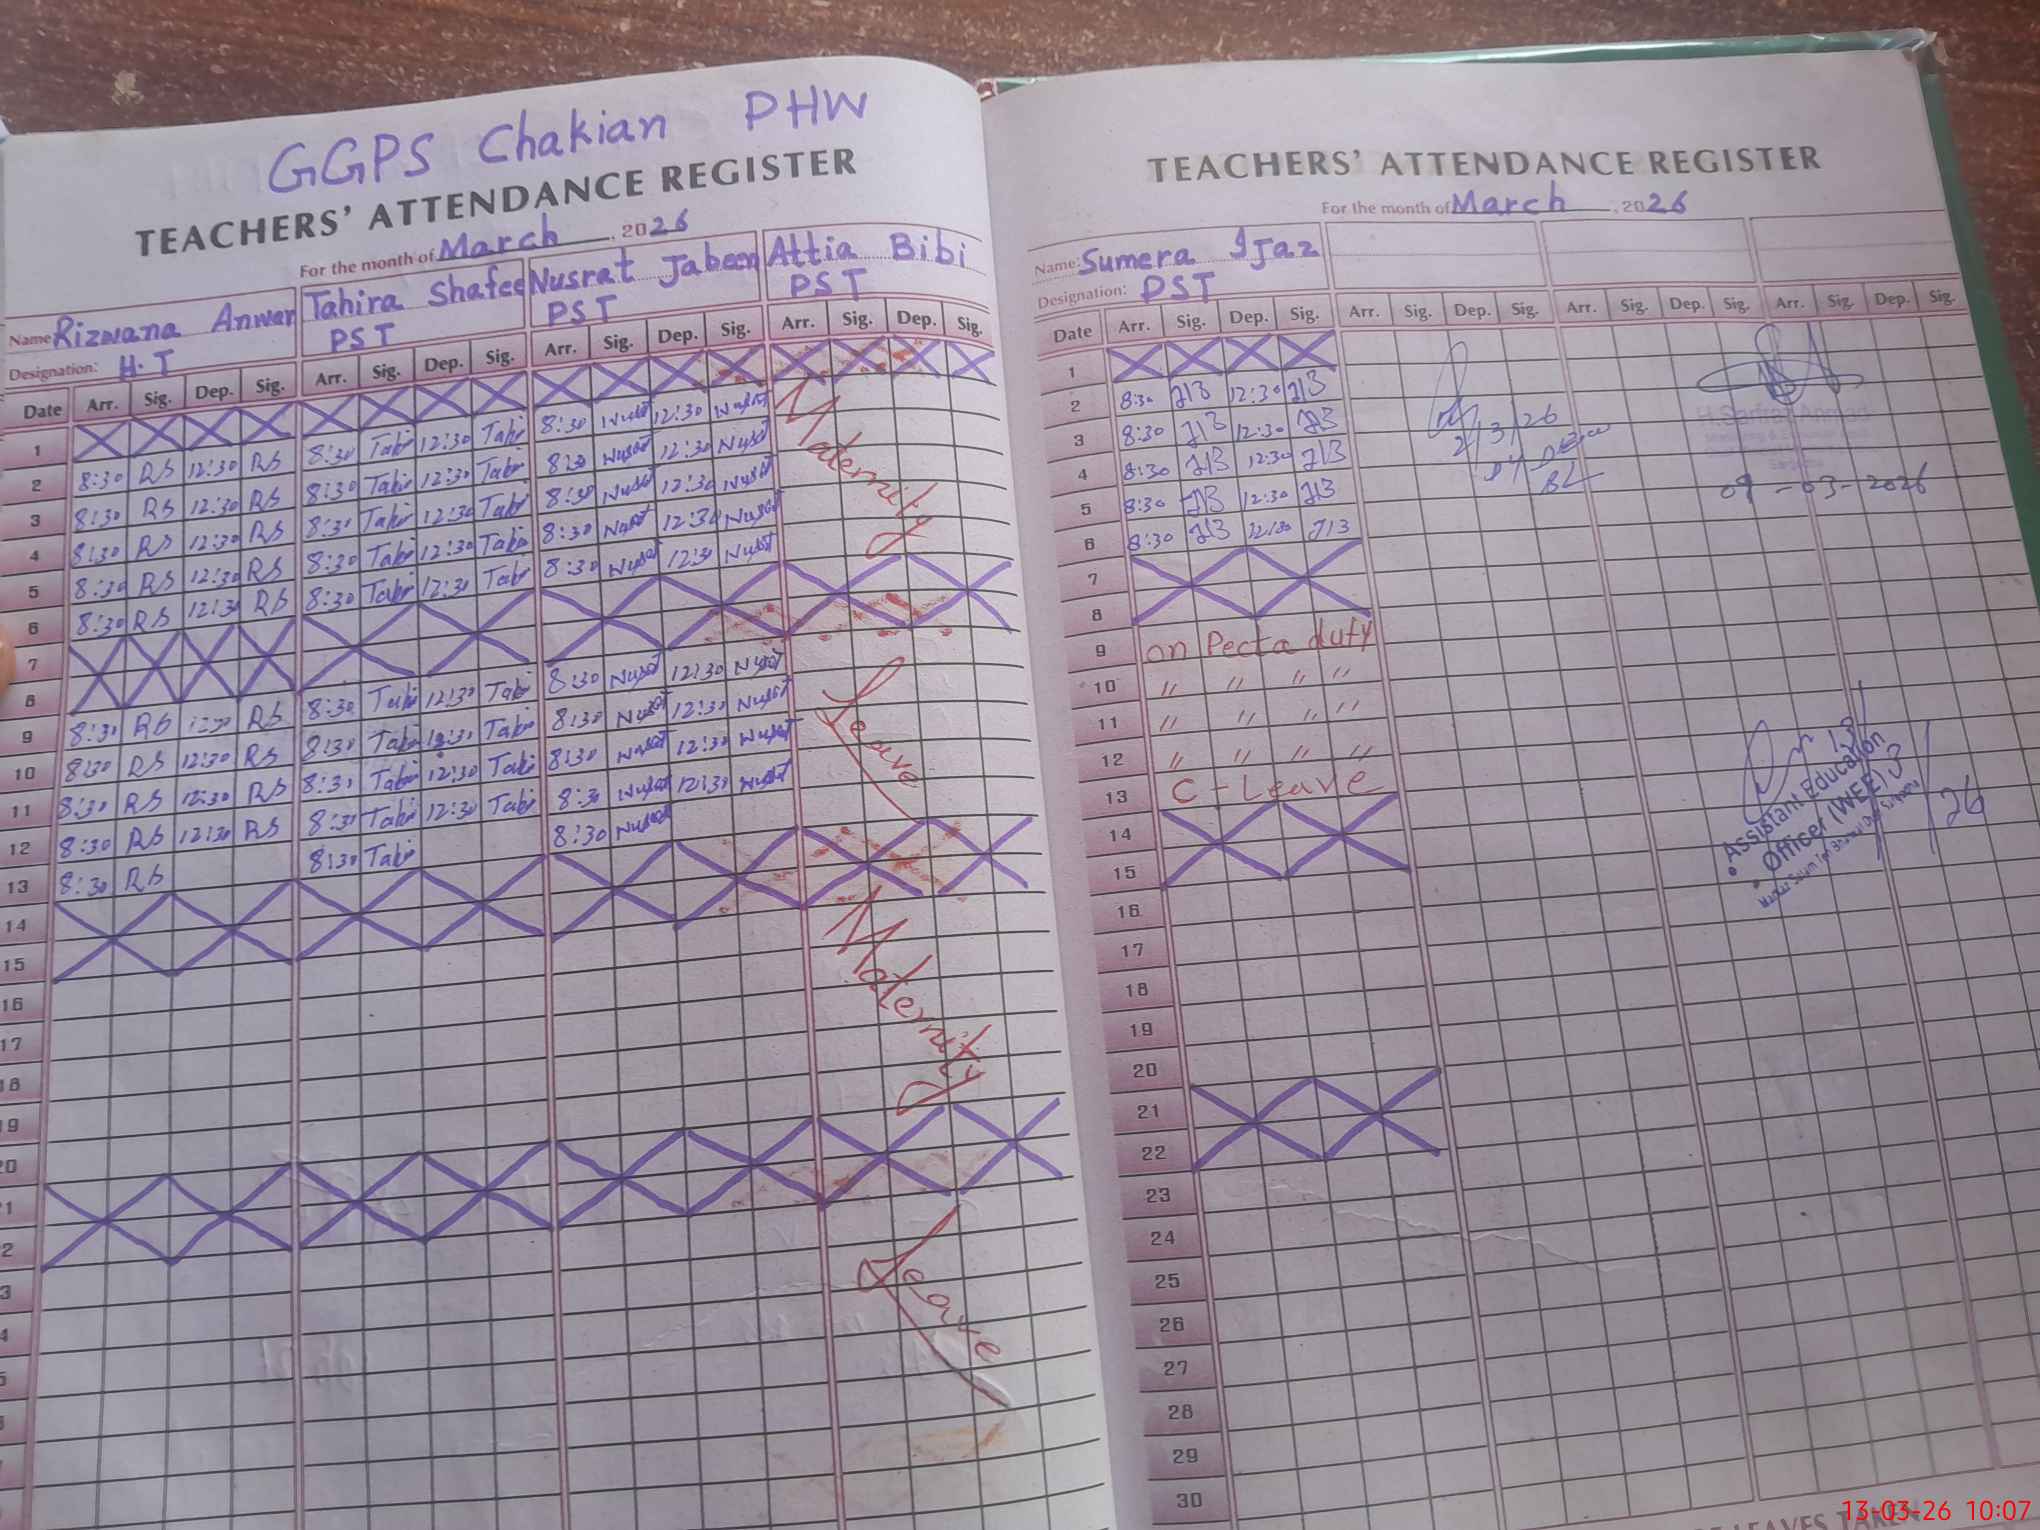 GGPS Chakian PHW
TEACHERS' ATTENDANCE REGISTER
For the month of March, 2026
Name Rizwana Anwar Tahira Shafee Nusrat Jabeen Attia Bibi
Designation: H.T PST PST PST
Date Arr. Sig. Dep. Sig. Arr. Sig. Dep. Sig. Arr. Sig. Dep. Sig. Arr. Sig. Dep. Sig.
1
2 8:30 RS 12:30 RS 8:30 Tahi 12:30 Tahi 8:30 Nusrat 12:30 Nusrat
3 8:30 RS 12:30 RS 8:30 Tahi 12:30 Tahi 8:30 Nusrat 12:30 Nusrat
4 8:30 RS 12:30 RS 8:30 Tahi 12:30 Tahi 8:30 Nusrat 12:30 Nusrat
5 8:30 RS 12:30 RS 8:30 Tahi 12:30 Tahi 8:30 Nusrat 12:30 Nusrat
6 8:30 RS 12:30 RS 8:30 Tahi 12:30 Tahi 8:30 Nusrat 12:30 Nusrat
Maternity
7
8
9 8:30 RS 12:30 RS 8:30 Tahi 12:30 Tahi 8:30 Nusrat 12:30 Nusrat
10 8:30 RS 12:30 RS 8:30 Tahi 12:30 Tahi 8:30 Nusrat 12:30 Nusrat
11 8:30 RS 12:30 RS 8:30 Tahi 12:30 Tahi 8:30 Nusrat 12:30 Nusrat
12 8:30 RS 12:30 RS 8:30 Tahi 12:30 Tahi 8:30 Nusrat 12:30 Nusrat
13 8:30 RS 8:30 Tahi 8:30 Nusrat
Leave
14
15
16
17
18
19
Maternity
20
21
22
Leave
TEACHERS' ATTENDANCE REGISTER
For the month of March, 2026
Name: Sumera Ijaz
Designation: PST
Date Arr. Sig. Dep. Sig. Arr. Sig. Dep. Sig. Arr. Sig. Dep. Sig. Arr. Sig. Dep. Sig.
1
2 8:30 JB 12:30 JB
3 8:30 JB 12:30 JB
4 8:30 JB 12:30 JB
5 8:30 JB 12:30 JB
6 8:30 JB 12:30 JB
2/3/26
H.Sarfraz Ahmad
09-03-2026
7
8
9 on Pecta duty
10 " " " "
11 " " " "
12 " " " "
13 C-Leave
13/3/26
Assistant Education
Officer (WEE)
14
15
16
17
18
19
20
21
22
23
24
25
26
27
28
29
30
13-03-26 10:07